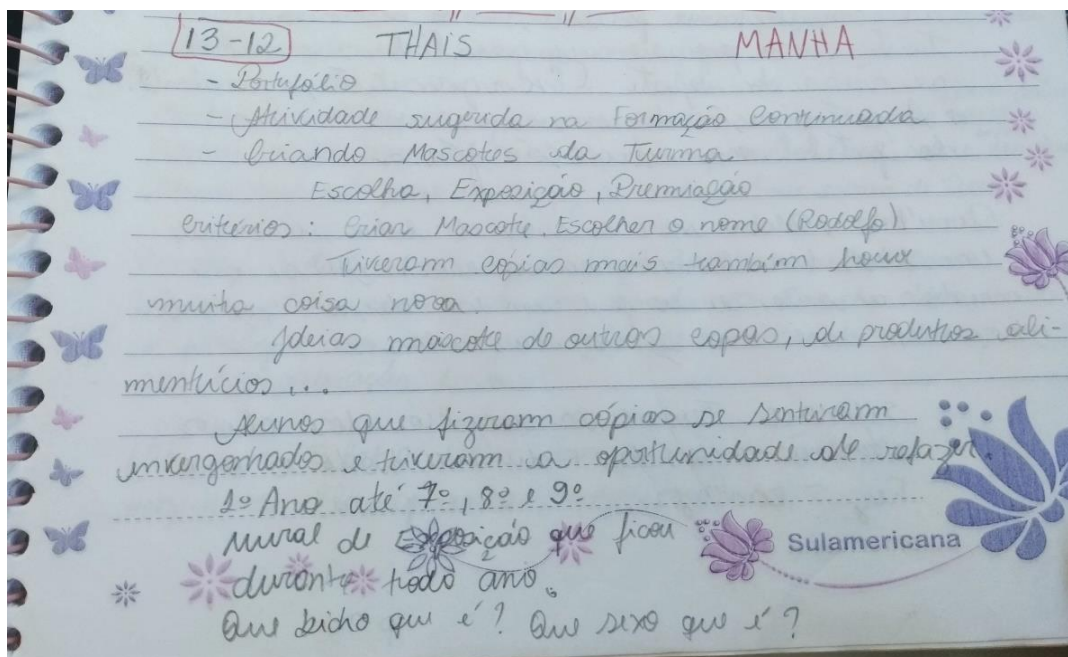 13-12 THAIS MANHA
- Portufólio
- Atividade sugerida na Formação Continuada
- Criando Mascotes da Turma
Escolha, Exposição, Premiação
Critérios: Criar Mascote, Escolher o nome (Rodolfo)
Tiveram cópias mais também houve
muita coisa nova.
Ideias mascote de outras copas, de produtos ali-
mentícios...
Alunos que fizeram cópias se sentiram
envergonhados e tiveram a oportunidade de refazer.
1º Ano até 7º, 8º e 9º
Mural de Exposição que ficou
durante todo ano.
Sulamericana
Que bicho que é? Que sexo que é?